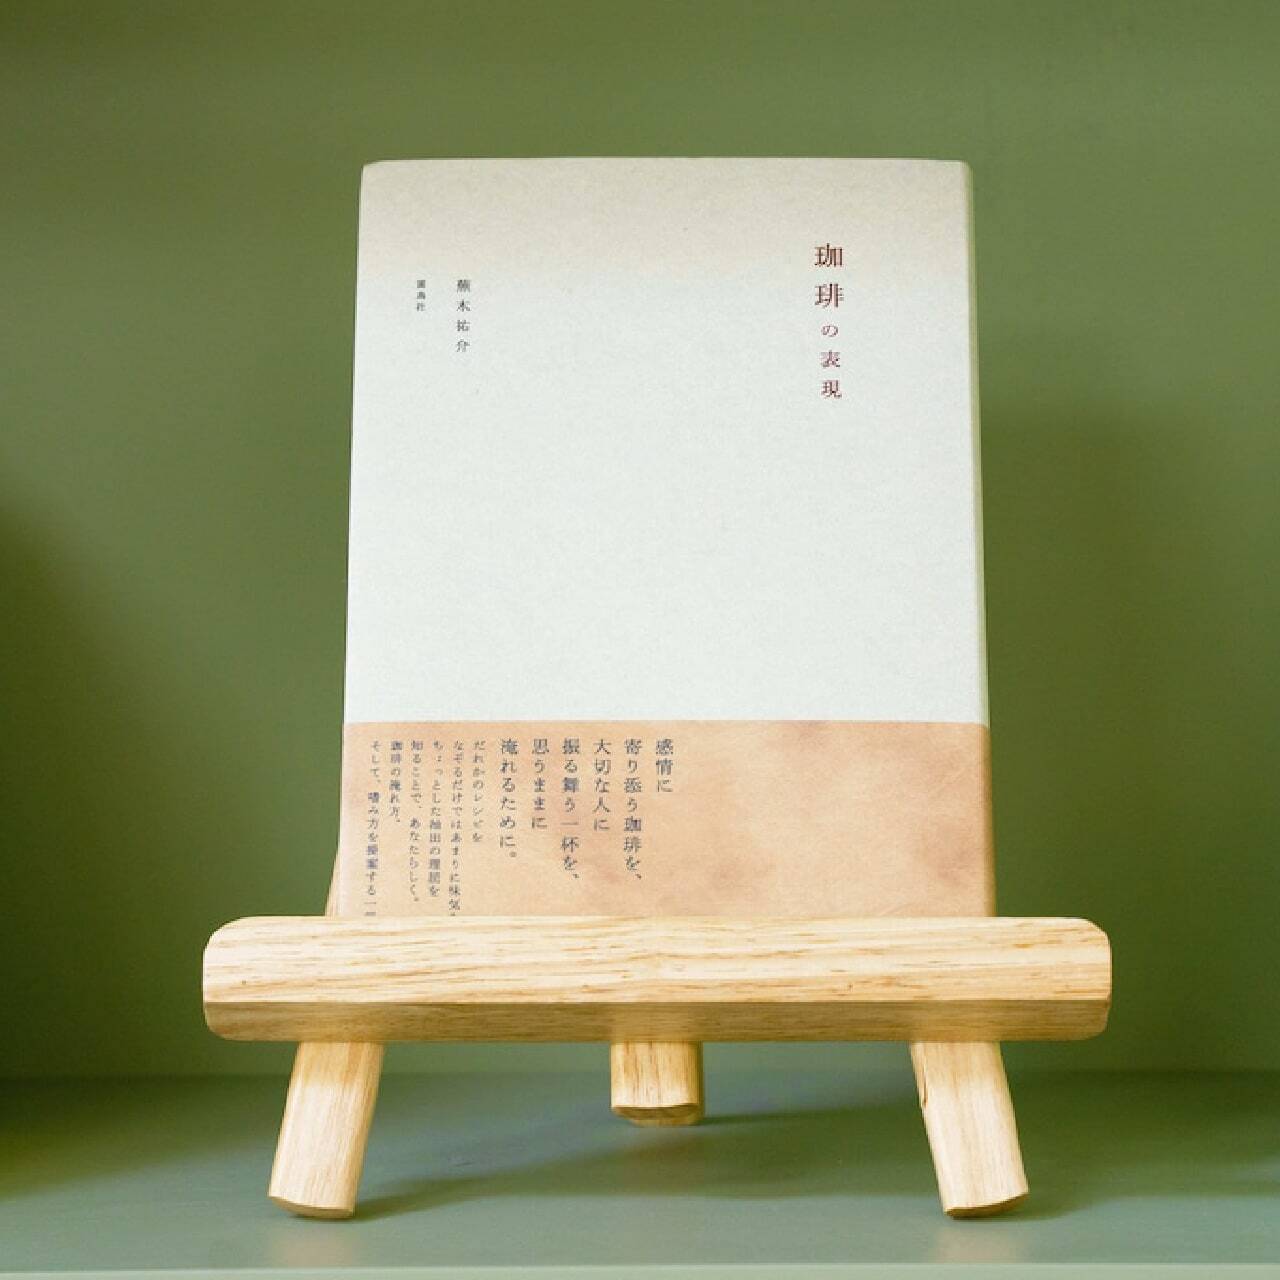 珈琲の表現
蕪木祐介
雷鳥社
感情に
寄り添う珈琲を、
大切な人に
振る舞う一杯を、
思うままに
淹れるために。
だれかのレシピを
なぞるだけではあまりに味気
ちょっとした抽出の理屈を
知ることで、あなたらしく。
珈琲の淹れ方、
そして、嗜み方を提案する一